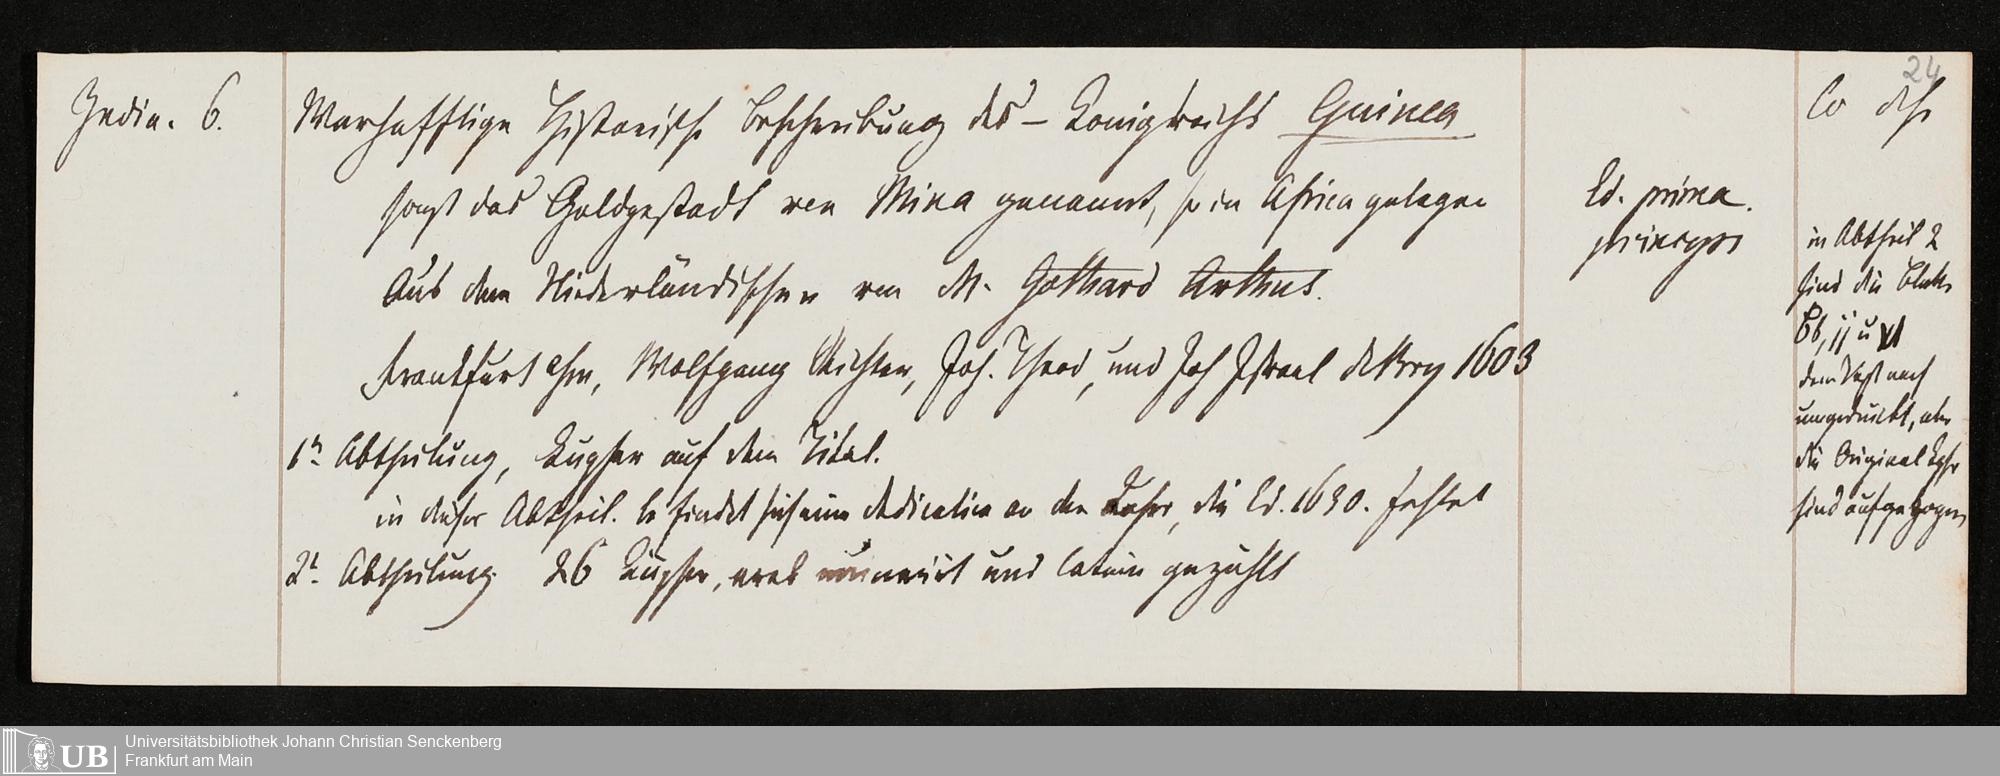 24
India. 6.
Warhafftige Historische Beschreibung des – Konigreichs Guinea
sonst das Goldgestadt von Mina genannt, so in Africa gelegen
Aus dem Niederländischen von M. Gotthard Arthus.
Frankfurt a/m, Wolfgang Richter, Joh. Theod, und Joh Israel de Bry 1603
1te Abtheilung, Kupfer auf dem Titel.
in dieser Abtheil. befindet sich eine dedication an den, die Ed. 1630. fehlet
2te Abtheilung. 26 Kupfer, und latein gezählt
Ed. prima.
princeps
Co
in Abtheil 2
sind die Blatt
Bb, ij u
dem Text nach
umgedruckt, aber
die Original Kpfr
sind aufgezogen
Universitätsbibliothek Johann Christian Senckenberg
Frankfurt am Main
UB